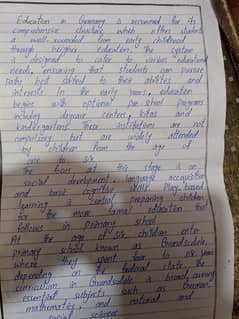 Education in Germany is renowned for its
comprehensive structure which offers students
a well-rounded from early childhood
through higher education. The system
is designed to cater to various educational
needs, ensuring that students can pursue
paths best suited to their abilities and
interests. In the early years, education
begins with optional pre-school programs
including daycare centers, kitas and
kindergartens. These institutions are not
compulsory but are widely attended
by children from the age of
one to six.
The focus at this stage is on
social development, language acquisition
and basic cognitive skills. Play based
learning is central preparing children
for the more formal education that
follows in primary school
At the age of six children enter
primary school known as Grundschule,
where they spent four to six years
depending on the federal state. The
curriculum in Grundschule is broad, covering
essential subjects such as German,
mathematics, and natural and
social sciences